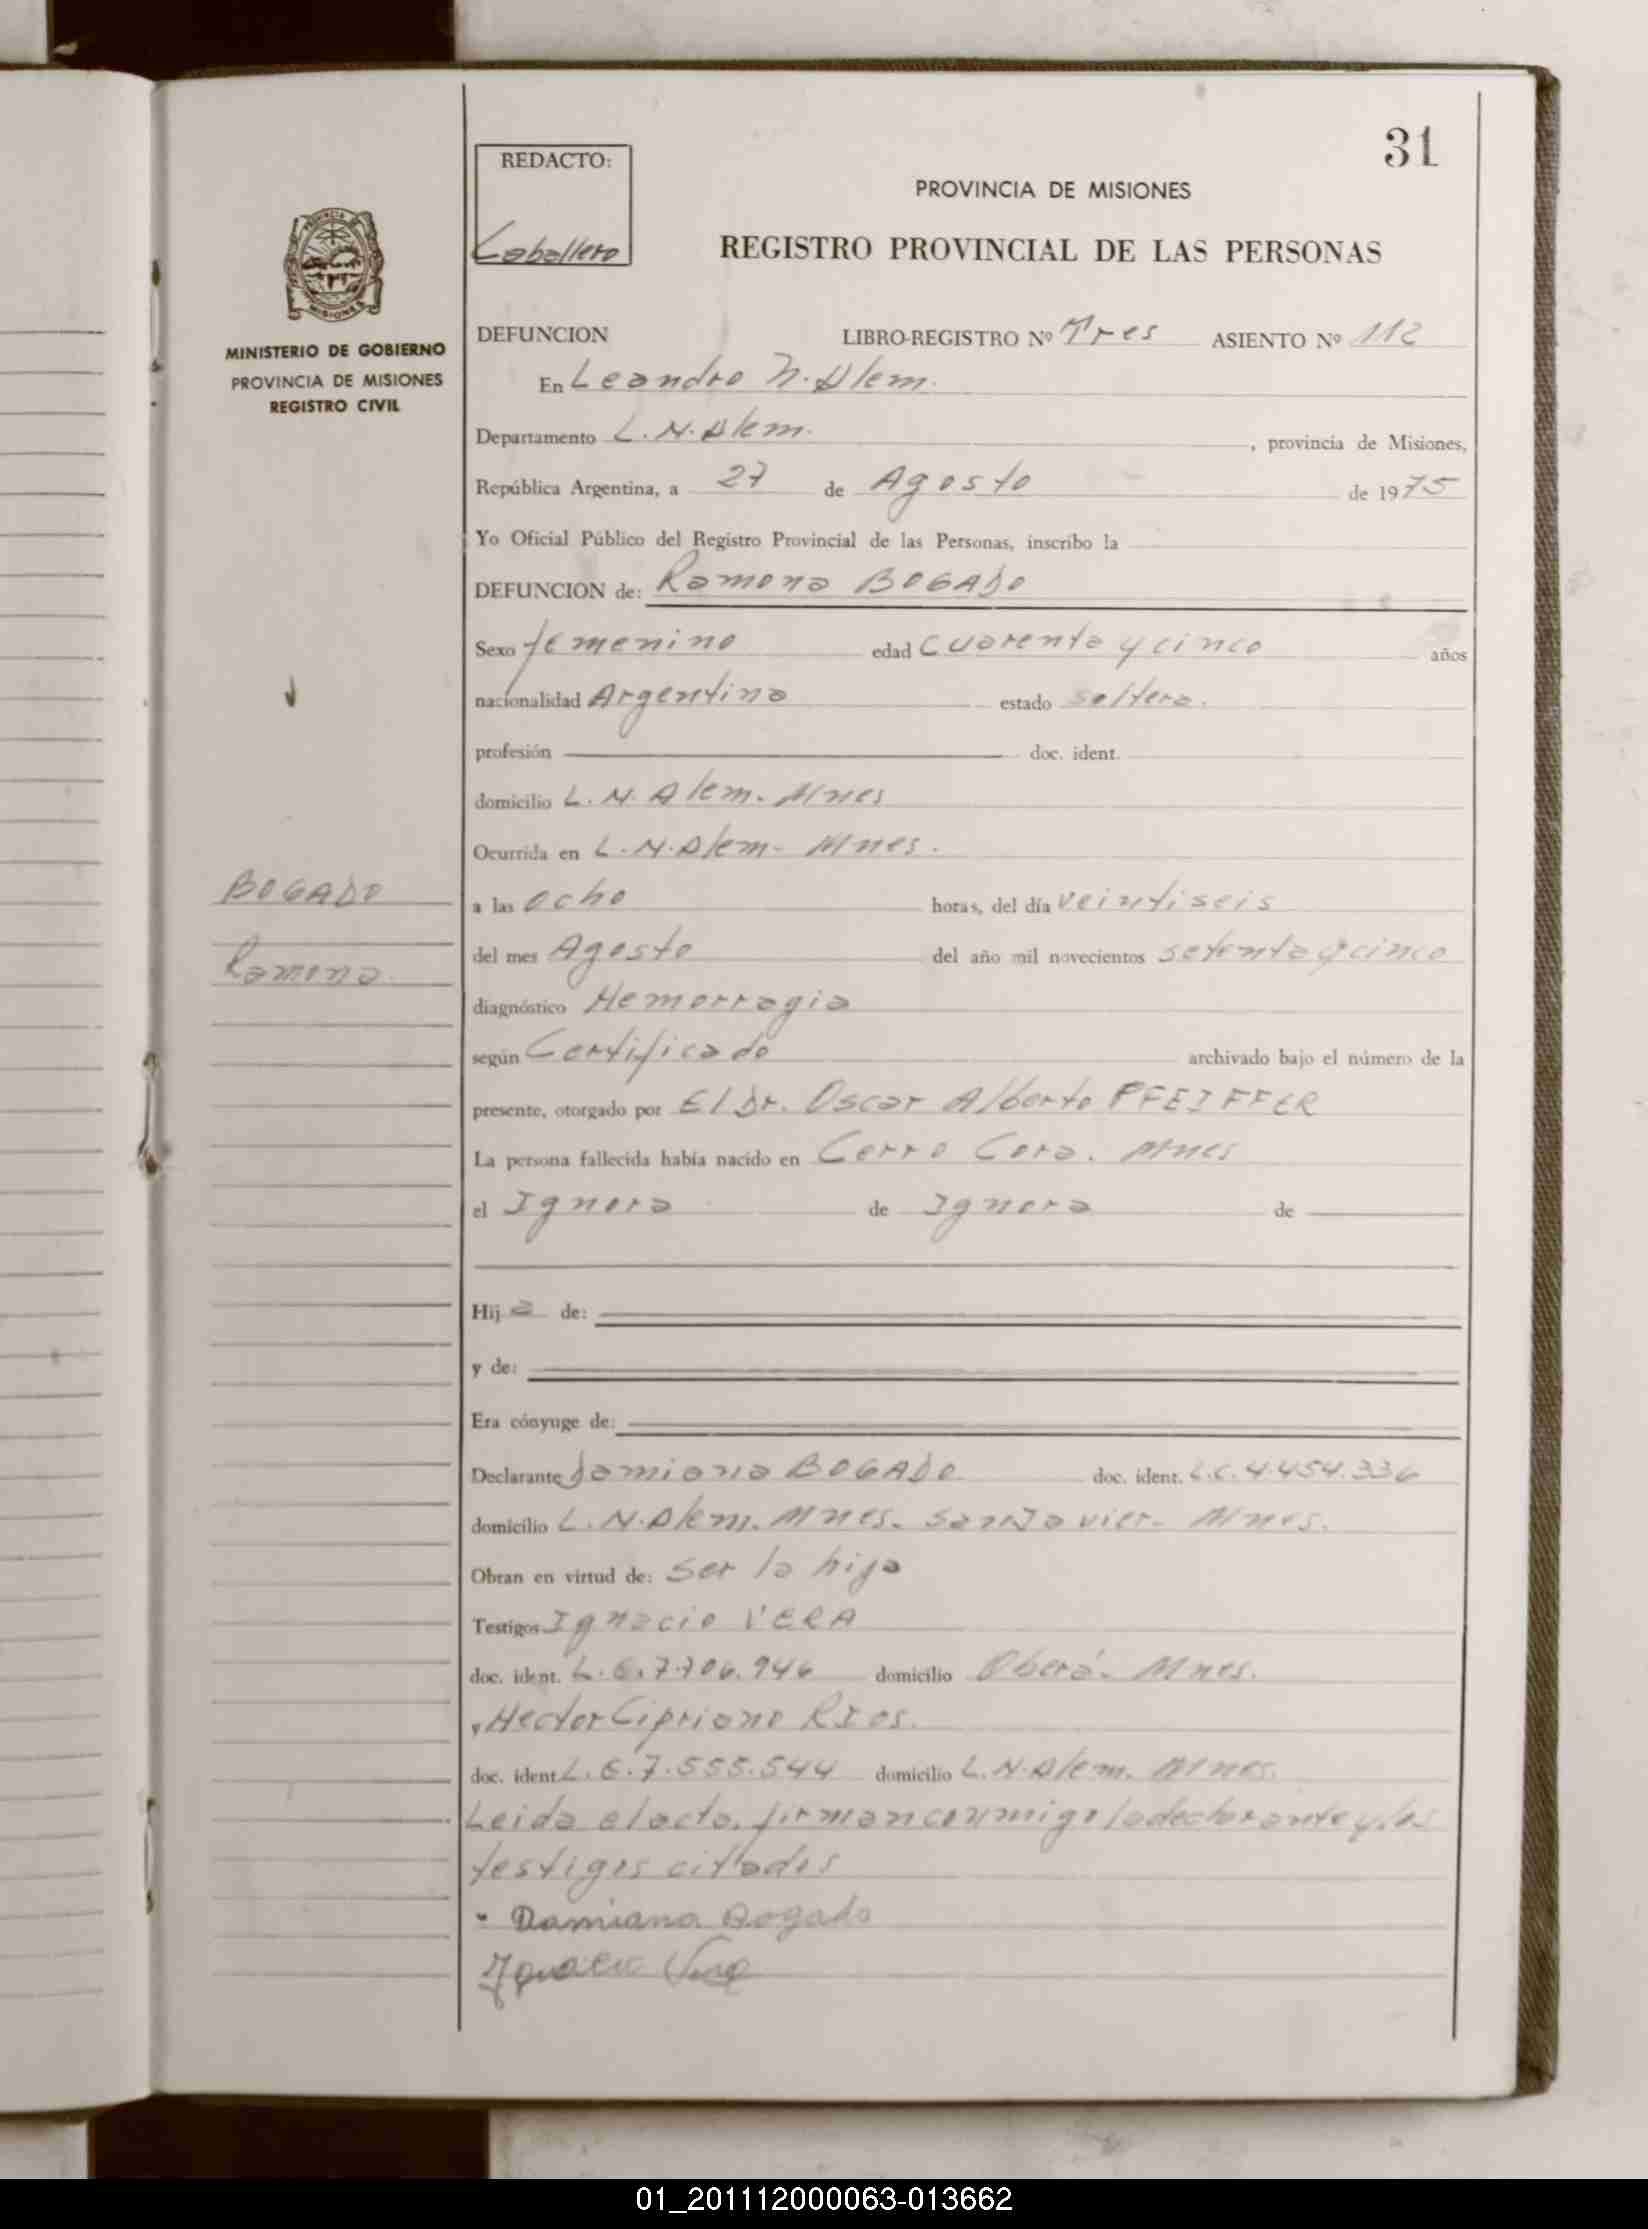 31
REDACTO:
Caballero
PROVINCIA DE MISIONES
REGISTRO PROVINCIAL DE LAS PERSONAS
MINISTERIO DE GOBIERNO
PROVINCIA DE MISIONES
REGISTRO CIVIL
DEFUNCION LIBRO-REGISTRO Nº Tres ASIENTO Nº 112
En Leandro N. Alem.
Departamento L. N. Alem. , provincia de Misiones,
República Argentina, a 27 de Agosto de 1975
Yo Oficial Público del Registro Provincial de las Personas, inscribo la
DEFUNCION de: Ramona BOGADO
Sexo femenino edad cuarenta y cinco años
nacionalidad Argentina estado soltera.
profesión doc. ident.
domicilio L. N. Alem. Mnes
Ocurrida en L. N. Alem- Mnes.
BOGADO
Ramona
a las ocho horas, del día veintiseis
del mes Agosto del año mil novecientos setenta y cinco
diagnóstico Hemorragia
según Certificado archivado bajo el número de la
presente, otorgado por El Dr. Oscar Alberto PFEIFFER
La persona fallecida había nacido en Cerro Cora. Mnes
el Ignora de Ignora de
Hij a de:
y de:
Era cónyuge de:
Declarante Damiana BOGADO doc. ident. L.C. 4.454.336
domicilio L. N. Alem. Mnes. San Javier- Mnes.
Obran en virtud de: ser la hija
Testigos Ignacio VERA
doc. ident. L. E. 7.706.946 domicilio Oberá- Mnes.
y Hector Cipriano RIOS.
doc. ident. L. E. 7.555.544 domicilio L. N. Alem. Mnes.
Leida el acta, firman conmigo la declarante y los
testigos citados
- Damiana Bogado
Ignacio Vera
01_201112000063-013662